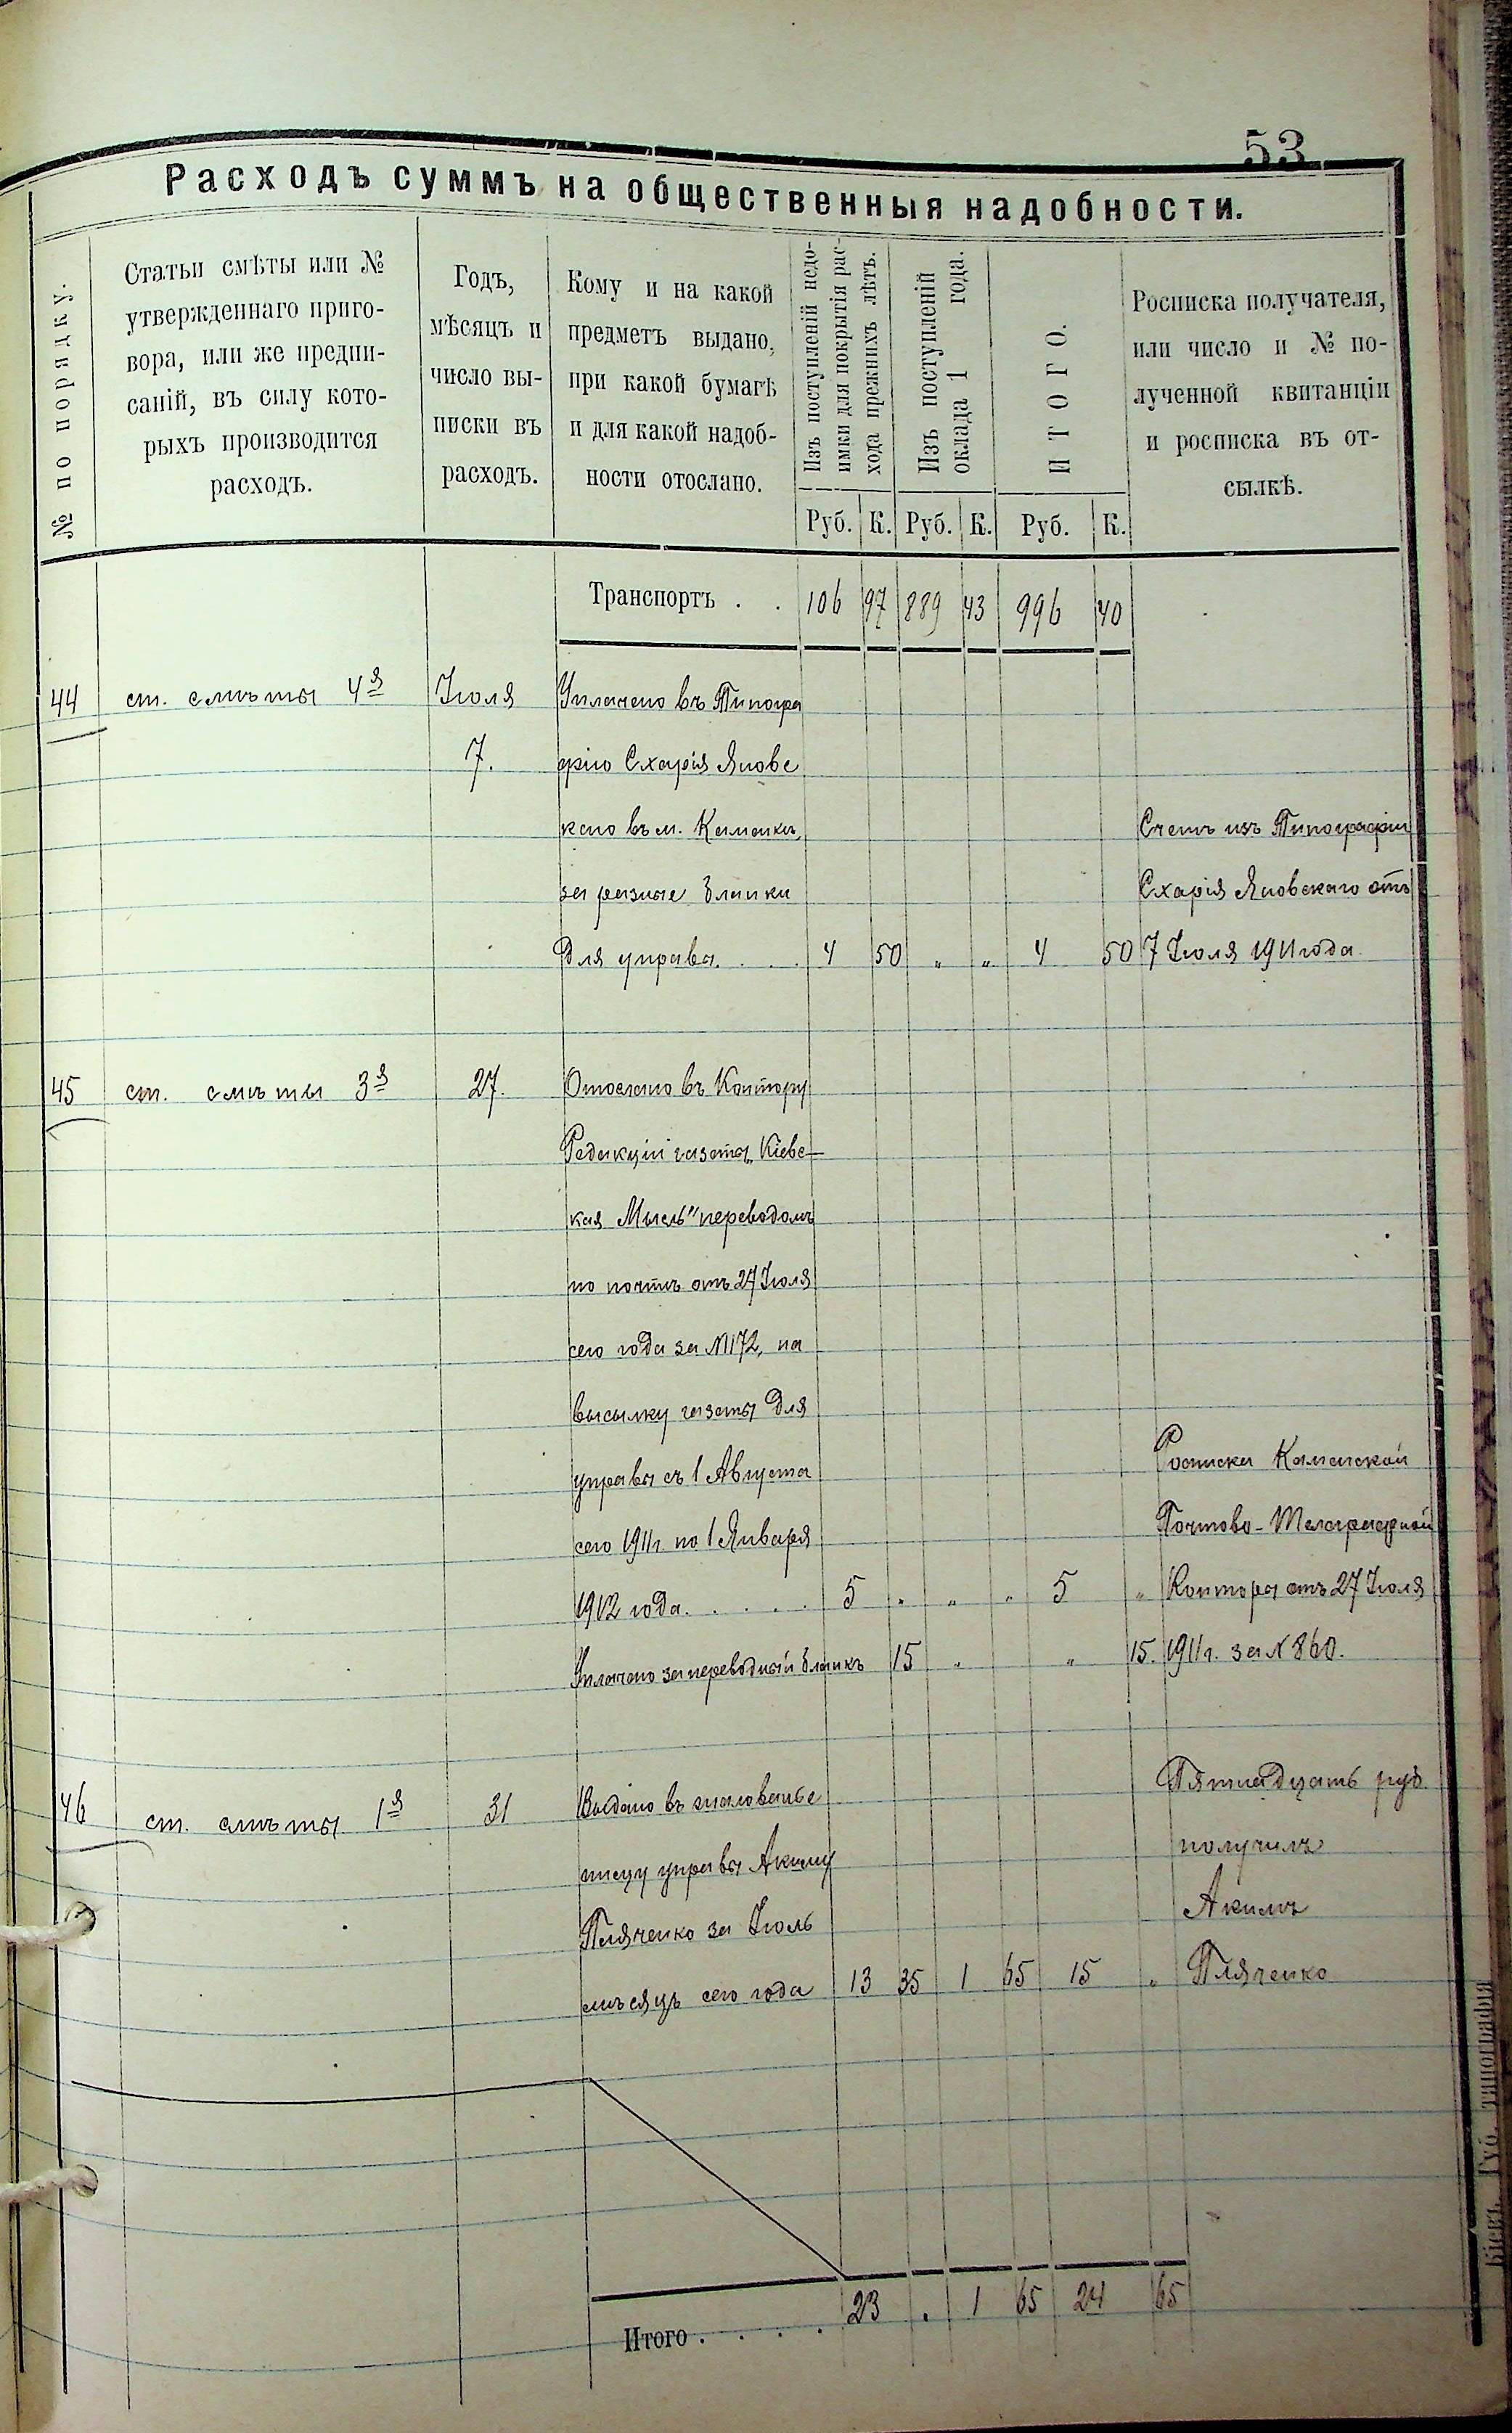 53
Расходъ суммъ на общественныя надобности.
№ по порядку.
Статьи смѣты или №
утвержденнаго приго-
вора, или же предпи-
саній, въ силу кото-
рыхъ производится
расходъ.
Годъ,
мѣсяцъ и
число вы-
писки въ
расходъ.
Кому и на какой
предметъ выдано,
при какой бумагѣ
и для какой надоб-
ности отослано.
Изъ поступленій недо-
имки для покрытія рас-
хода прежнихъ лѣтъ.
Изъ поступленій
оклада 1 года.
ИТОГО.
Росписка получателя,
или число и № по-
лученной квитанціи
и росписка въ от-
сылкѣ.
Руб. К. Руб. К. Руб. К.
Транспортъ . . 106 97 889 43 996 40
44 ст. смѣты 4я Іюля Уплачено въ Типогра
7. фію Схарія Яновс
каго въ м. Каменкѣ, Счетъ изъ Типографіи
за разные бланки Схарія Яновскаго отъ
для управы. . . . 4 50 „ „ 4 50 7 Іюля 1911 года.
45 ст. смѣты 3я 27. Отослано въ Контору
Редакціи газеты „Кіевс-
кая Мысль" переводомъ
по почтѣ отъ 27 Іюля
сего года за № 172, на
высылку газеты для
управы съ 1 Августа Росписка Каменской
сего 1911 г. по 1 Января Почтово-Телеграфной
1912 года. . . . . 5 „ „ „ 5 „ Конторы отъ 27 Іюля
Уплачено за переводный бланкъ 15 „ „ 15. 1911 г. за № 860.
46 ст. смѣты 1я 31 Выдано въ жалованье Пятнадцать руб.
писцу управы Акиму получилъ
Пляченко за Іюль Акимъ
мѣсяцъ сего года 13 35 1 65 15 „ Пляченко
Итого . . . . 23 . 1 65 24 65
Кіевъ. Губ. типографія